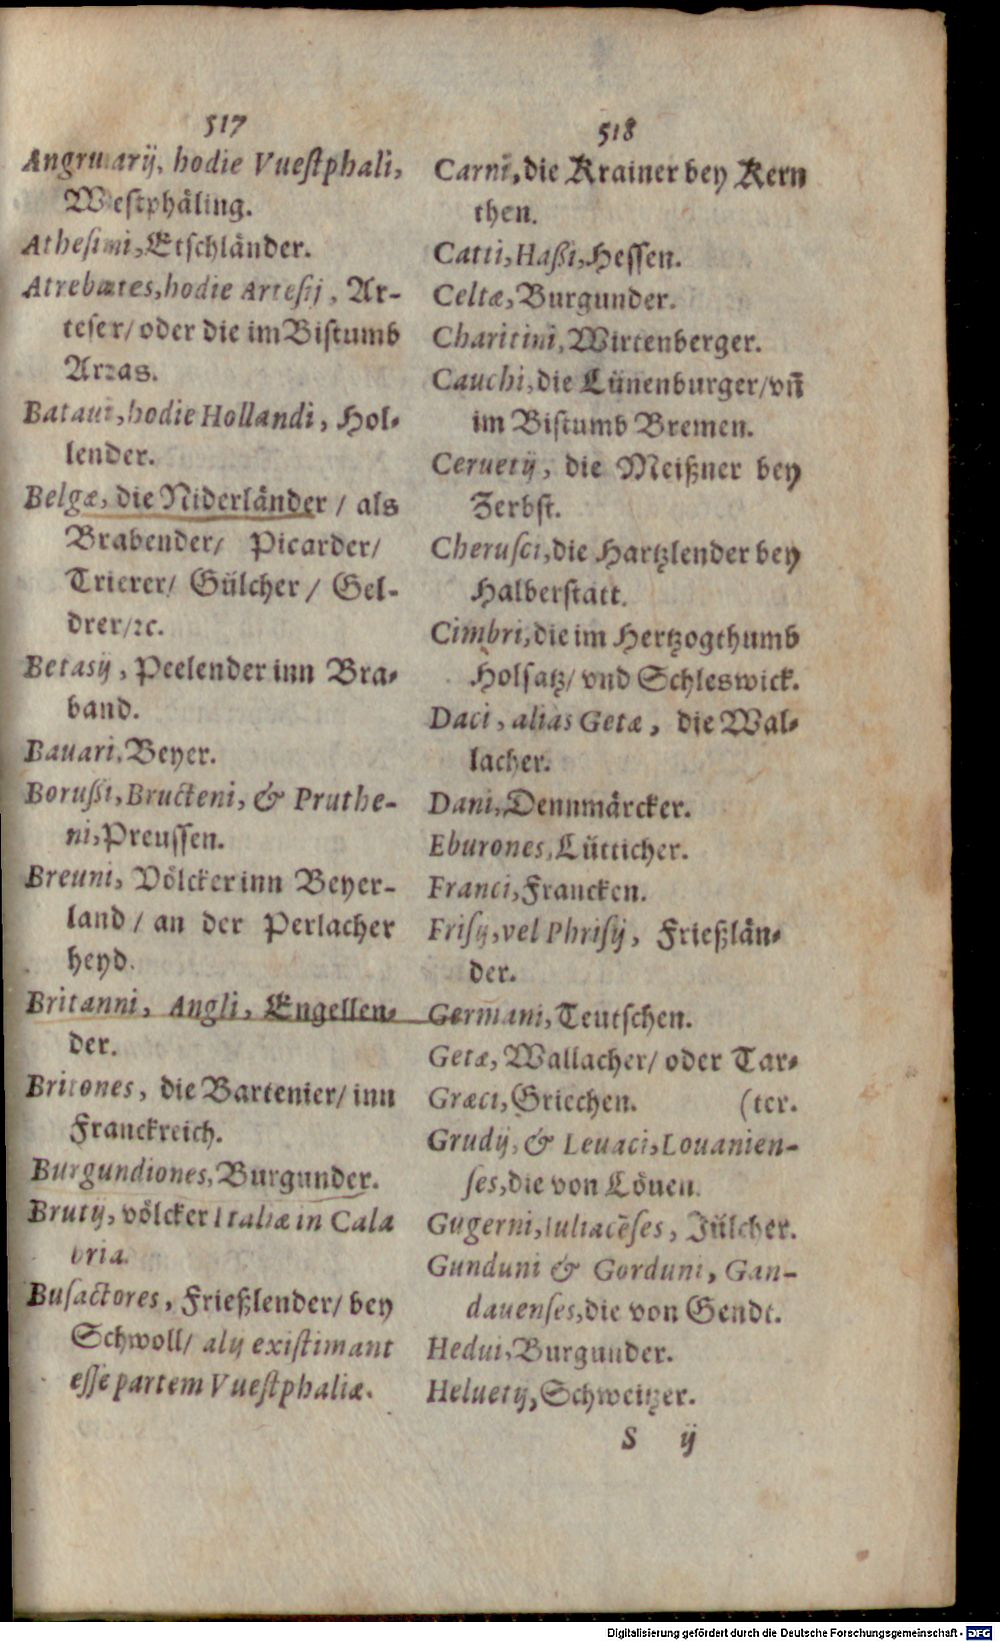 517
Angrivarij, hodie Vuestphali,
Westphåling.
Athesini, Etschlånder.
Atrebates, hodie Artesij, Ar-
teser/ oder die im Bistumb
Arras.
Bataui, hodie Hollandi, Hol-
lender.
Belgæ, die Niderlånder / als
Brabender/ Picarder/
Trierer/ Gůlcher / Gel-
drer/ ꝛc.
Betasij, Peelender inn Bra-
band.
Bauari, Beyer.
Borußi, Bructeni, & Pruthe-
ni, Preussen.
Breuni, Vôlcker inn Beyer-
land / an der Perlacher
heyd.
Britanni, Angli, Engellen-
der.
Britones, die Bartenier/ inn
Franckreich.
Burgundiones, Burgunder.
Brutij, vôlcker Italiæ in Cala
bria.
Busactores, Frießlender/ bey
Schwoll/ alij existimant
esse partem Vuestphaliæ.
518
Carni, die Krainer bey Kern
then.
Catti, Haßi, Hessen.
Celtæ, Burgunder.
Charitini, Wirtenberger.
Cauchi, die Lünenburger/ vñ
im Bistumb Bremen.
Ceruetij, die Meißner bey
Zerbst.
Cherusci, die Hartzlender bey
Halberstatt.
Cimbri, die im Hertzogthumb
Holsatz/ vnd Schleswick.
Daci, alias Getæ, die Wal-
lacher.
Dani, Dennmårcker.
Eburones, Lůtticher.
Franci, Francken.
Frisij, vel Phrisij, Frießlån-
der.
Germani, Teutschen.
Getæ, Wallacher/ oder Tar-
Græci, Griechen. (ter.
Grudij, & Leuaci, Louanien-
ses, die von Lôuen.
Gugerni, Iuliacēses, Jůlcher.
Gunduni & Gorduni, Gan-
dauenses, die von Gendt.
Hedui, Burgunder.
Heluetij, Schweitzer.
S ij
Digitalisierung gefördert durch die Deutsche Forschungsgemeinschaft - DFG